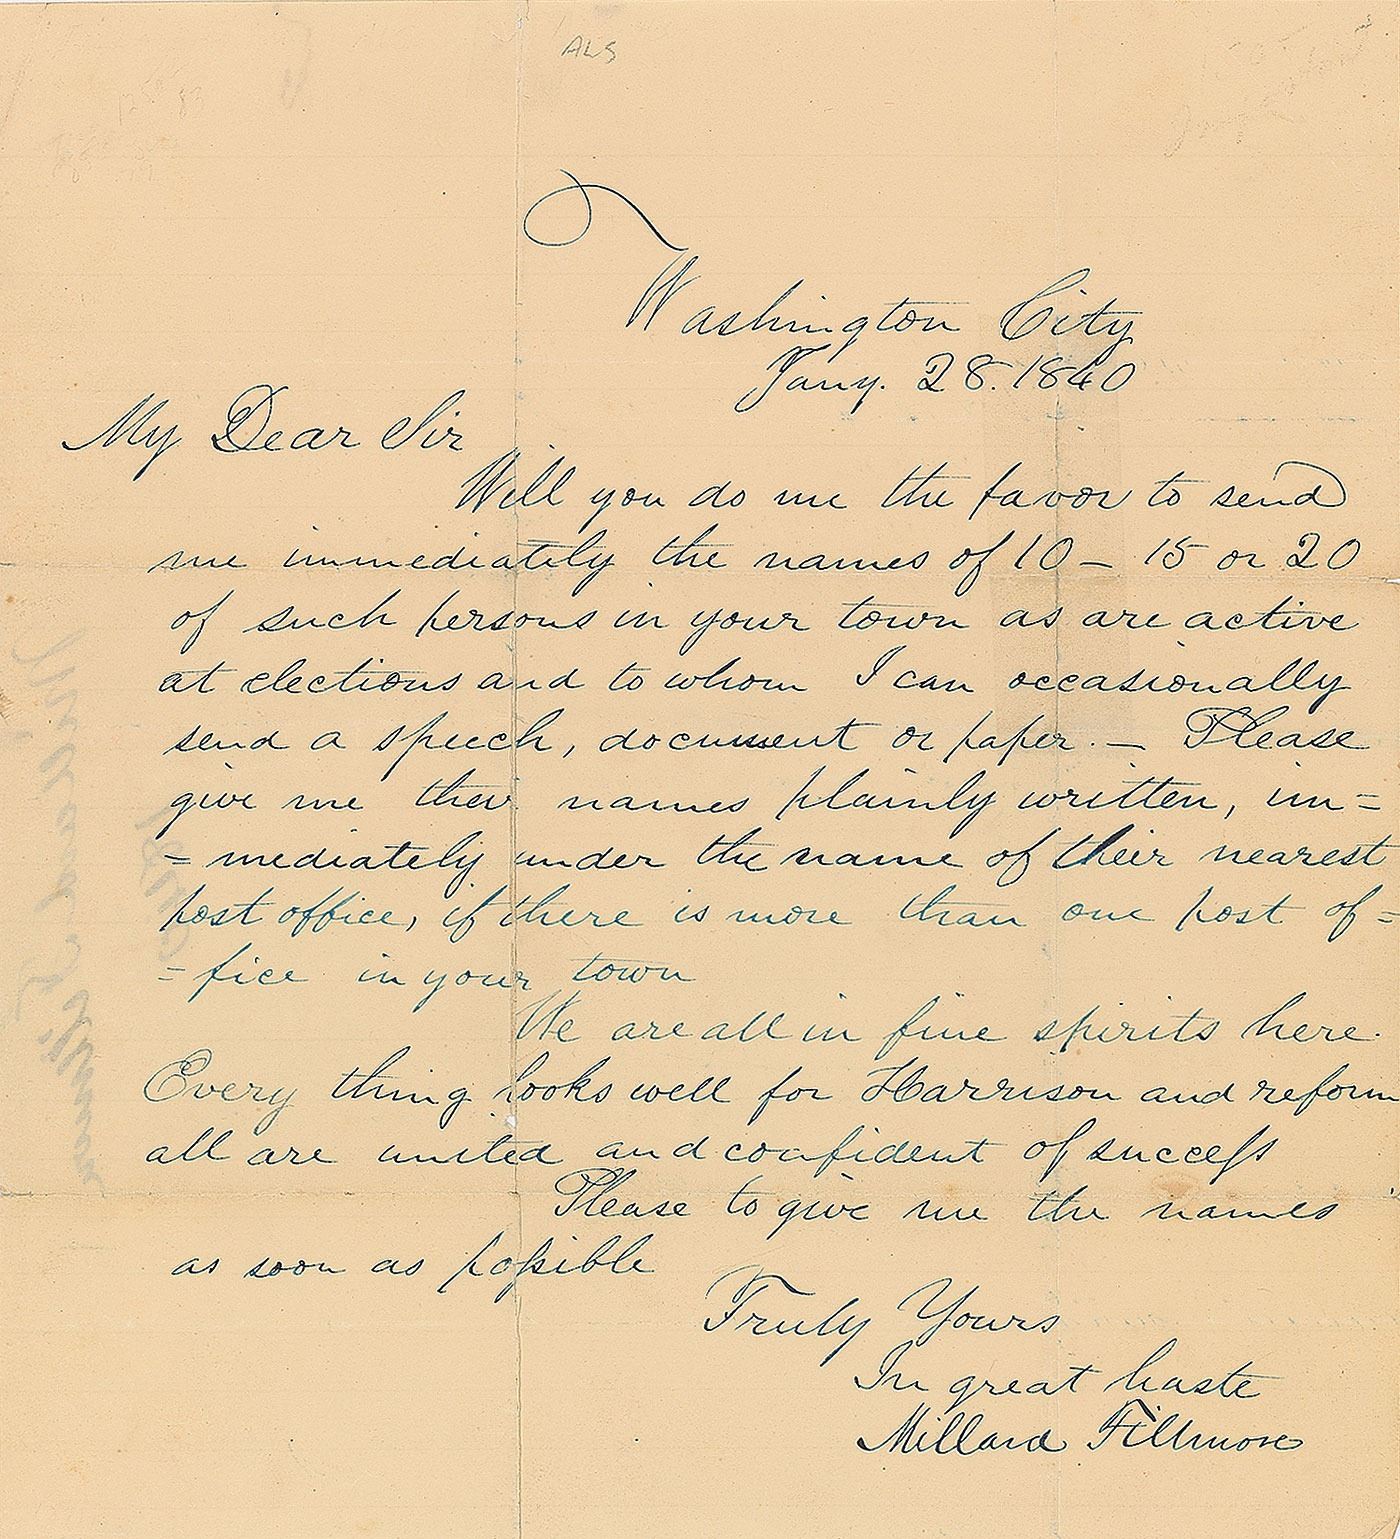 ALS
Washington City
Jany. 28. 1840
My Dear Sir
Will you do me the favor to send
me immediately the names of 10 – 15 or 20
of such persons in your town as are active
at elections and to whom I can occasionally
send a speech, document or paper. – Please
give me their names plainly written, im=
=mediately under the name of their nearest
post office, if there is more than one post of=
=fice in your town
We are all in fine spirits here.
Every thing looks well for Harrison and reform
all are united and confident of success
Please to give me the names
as soon as possible
Truly Yours
In great haste
Millard Fillmore